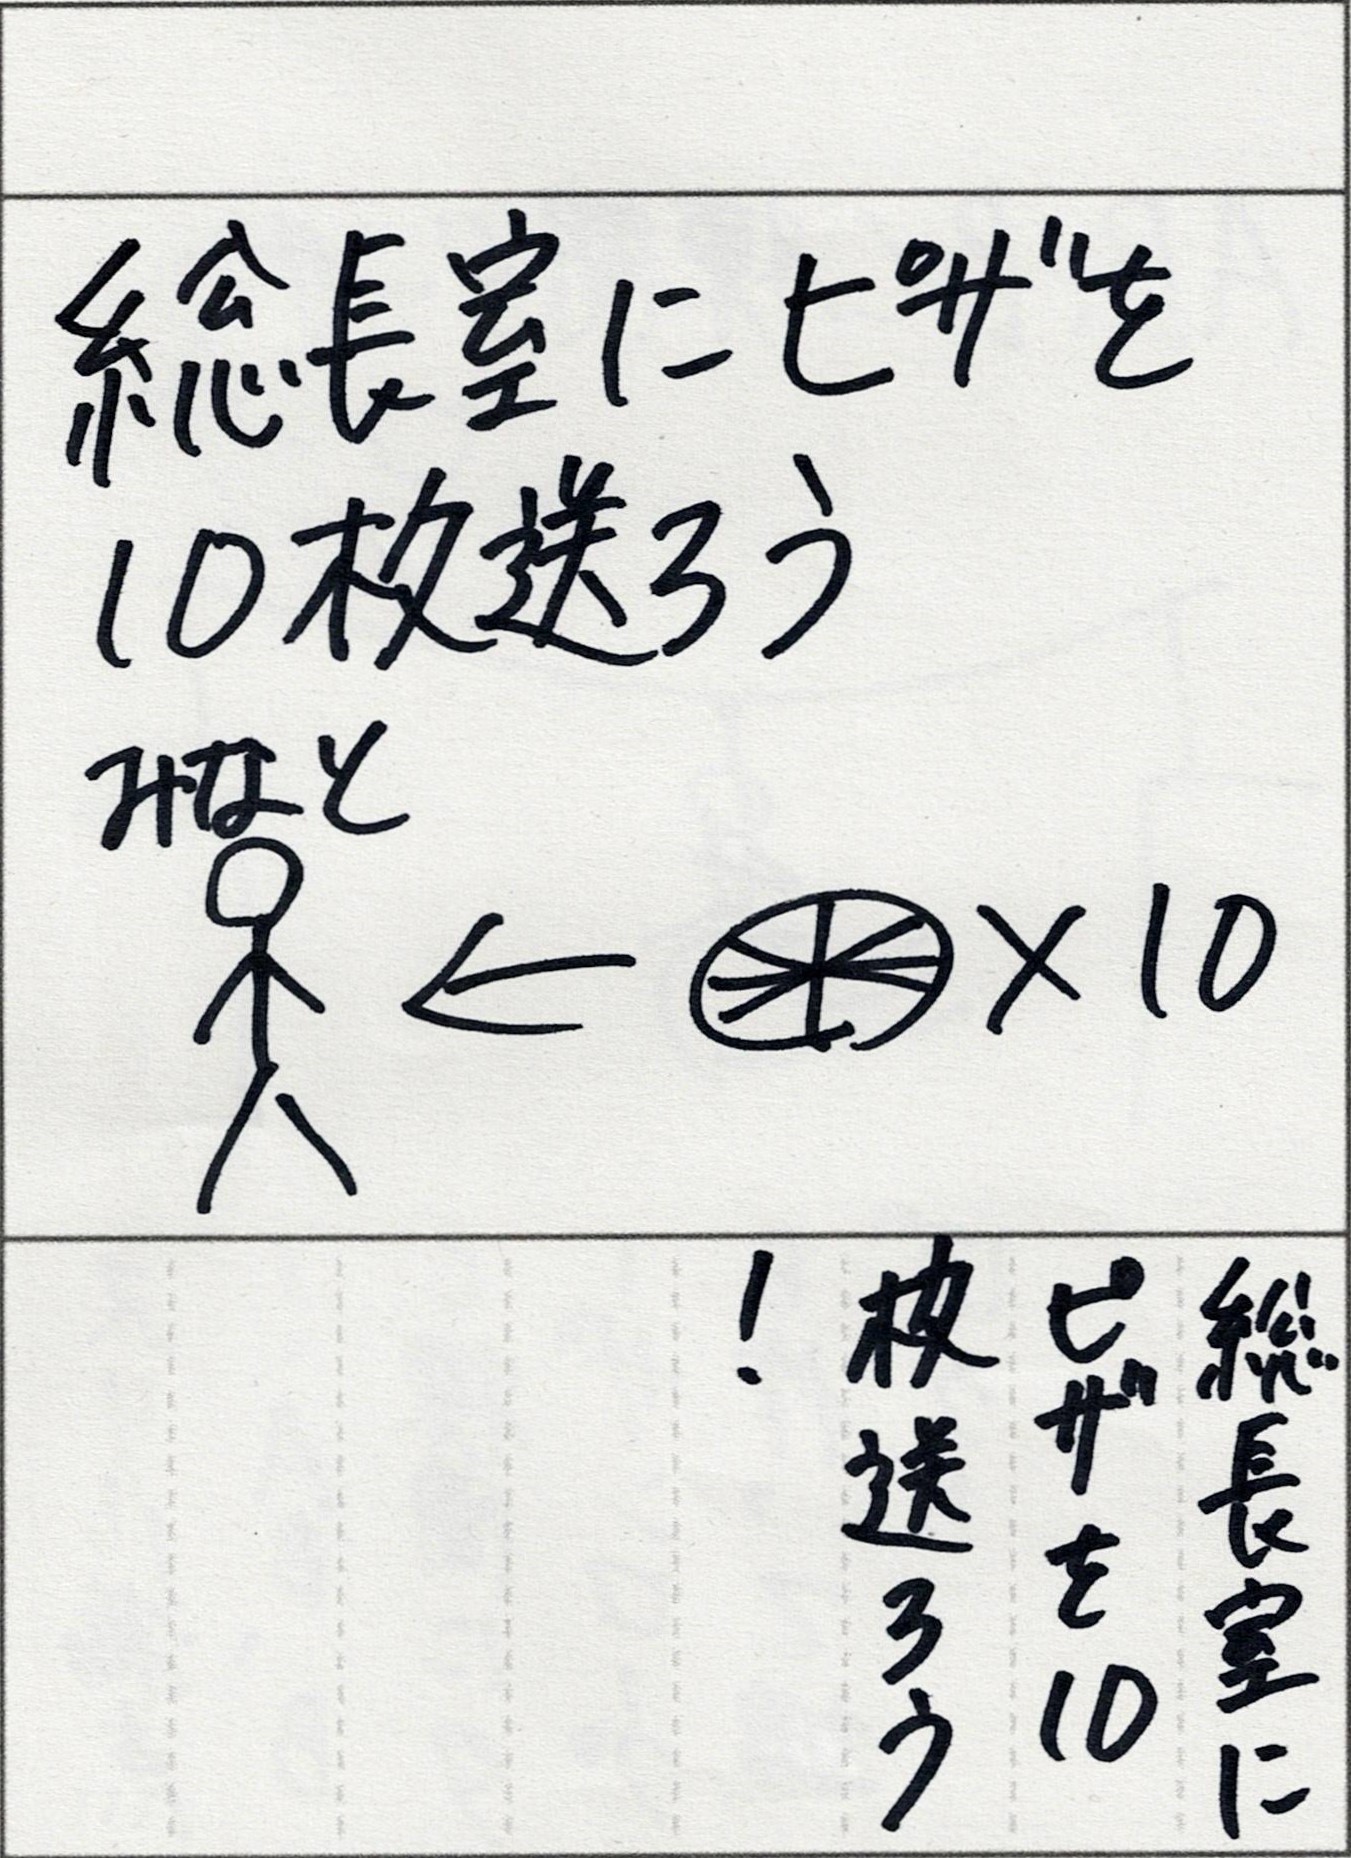 総長室にピザを
10枚送ろう
みなと
×10
総長室に
ピザを10
枚送ろう
!